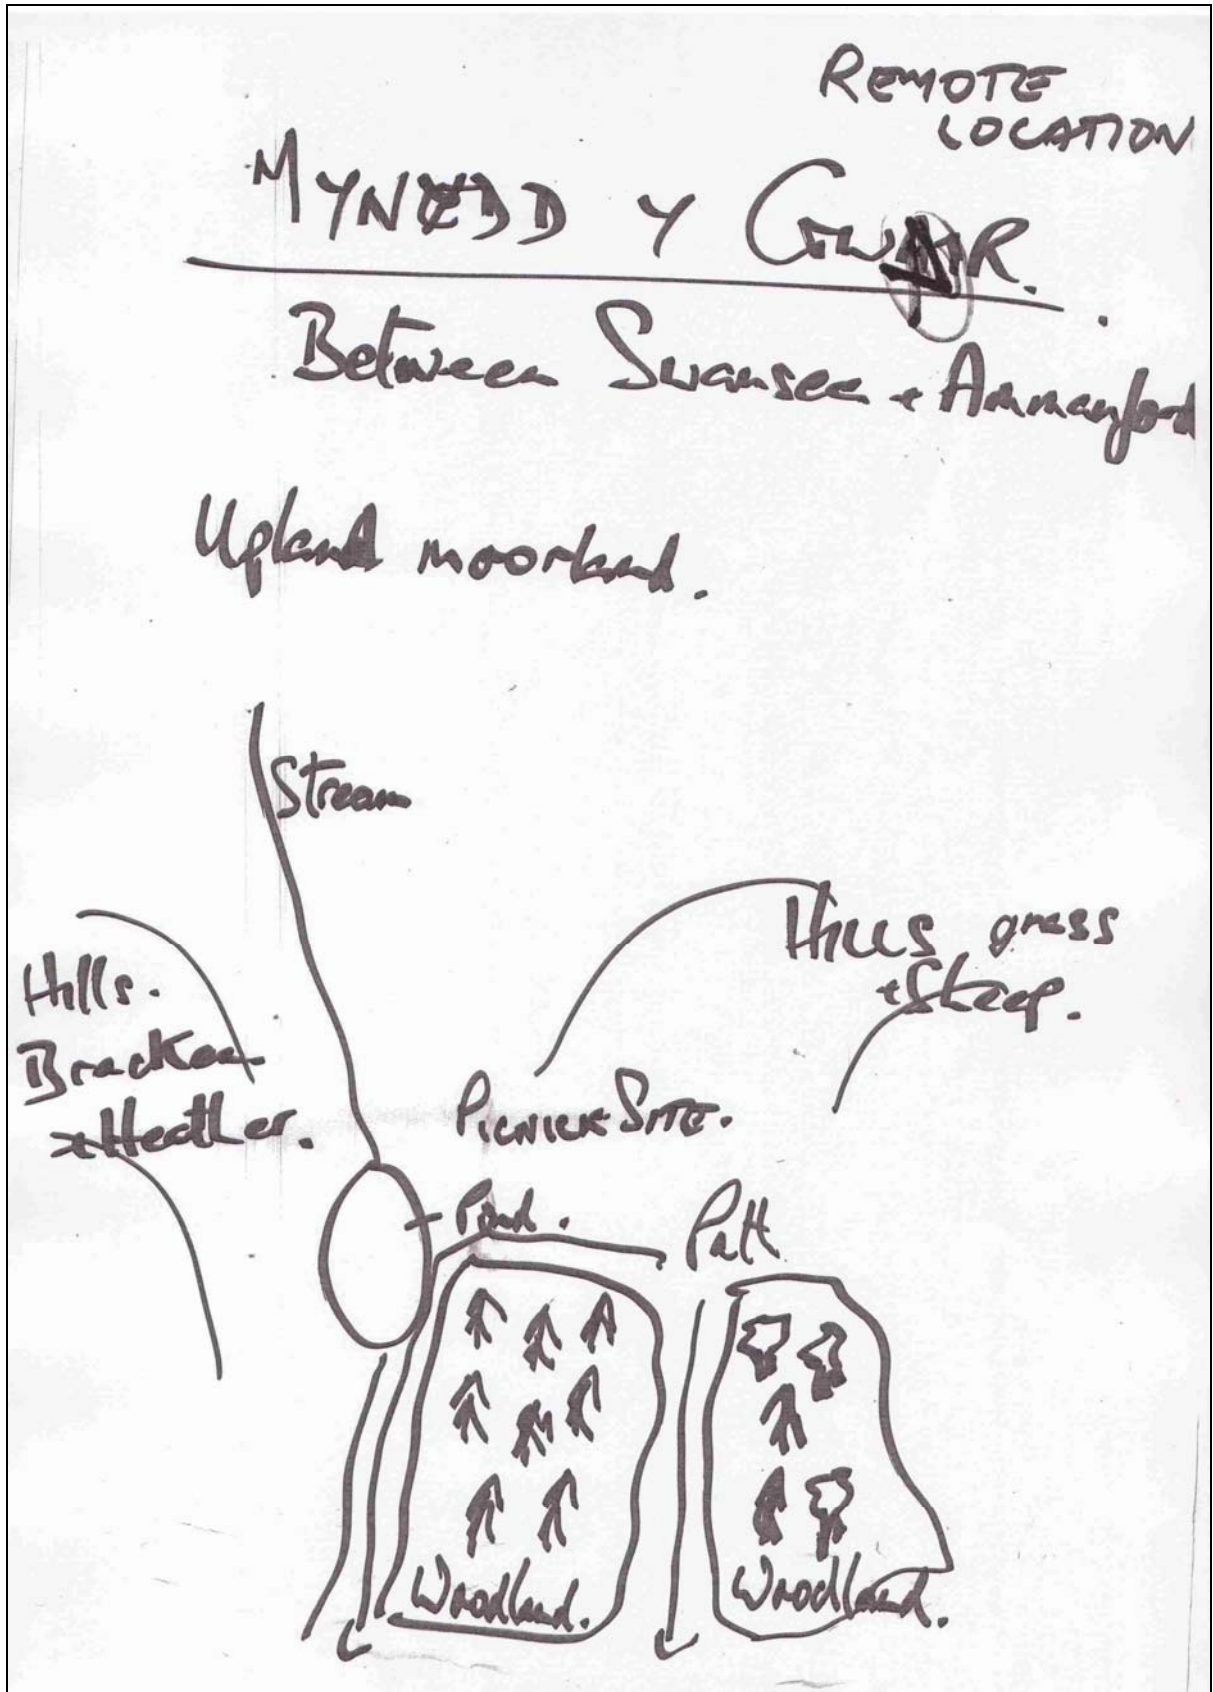 REMOTE
LOCATION
MYNEDD Y GWAIR.
Between Swansea + Ammanford
Upland moorland.
Stream
Hills grass
+ Steep.
Hills.
Bracken
+ Heather.
PICNICK SITE.
Pond.
Path
Woodland.
Woodland.